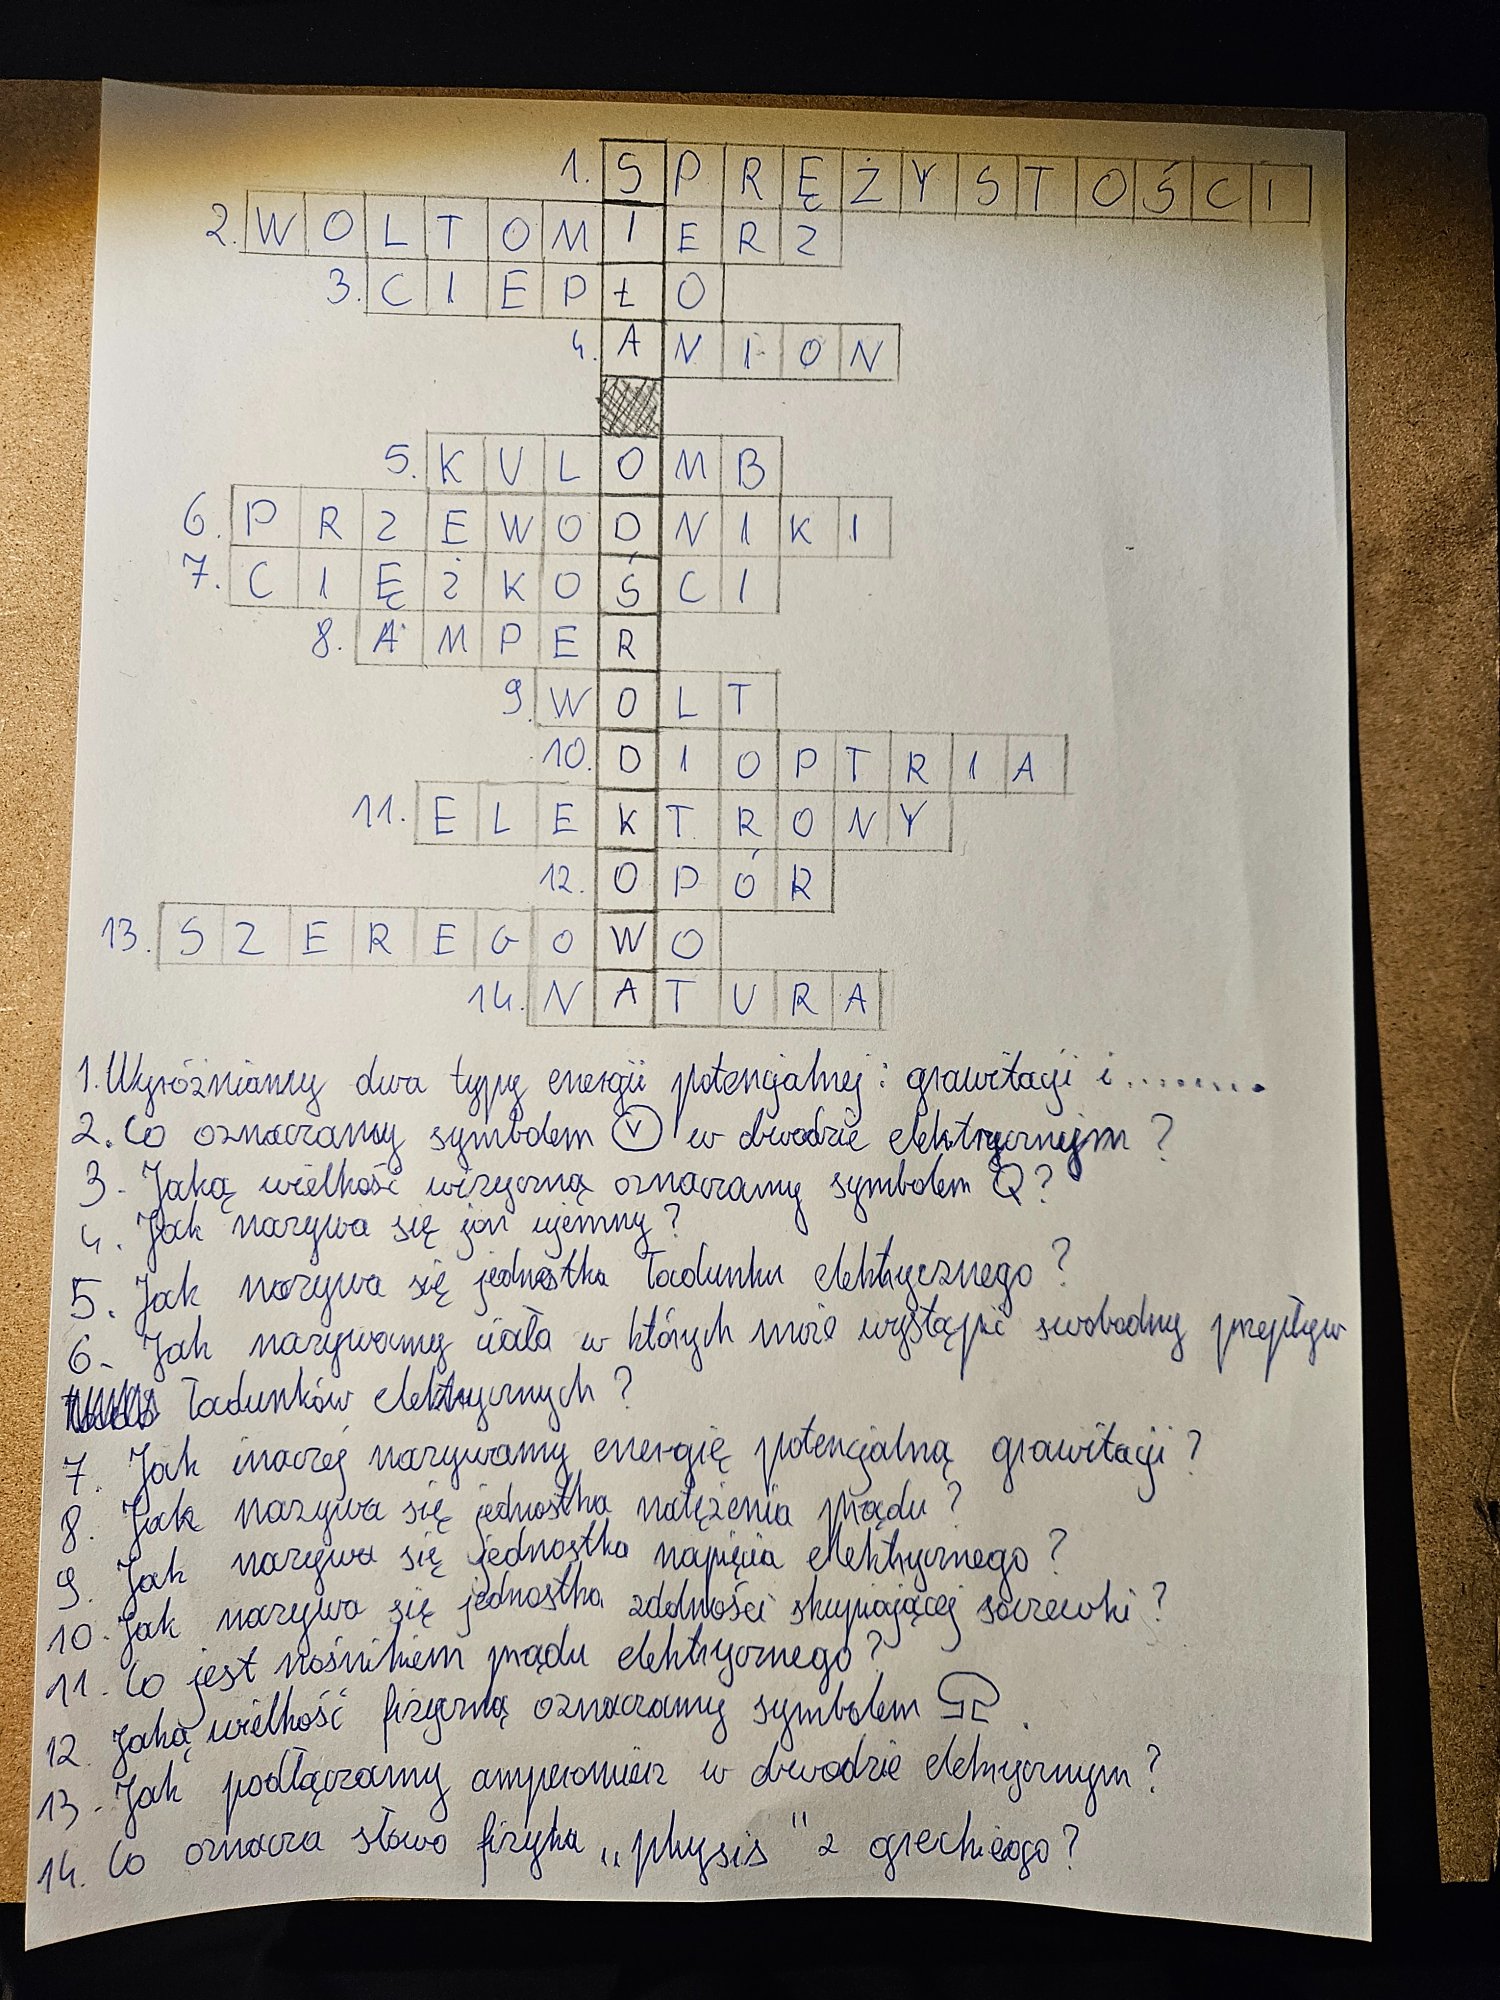 1. SPRĘŻYSTOŚCI
2. WOLTOMIERZ
3. CIEPŁO
4. ANION
5. KULOMB
6. PRZEWODNIKI
7. CIĘŻKOŚCI
8. AMPER
9. WOLT
10. DIOPTRIA
11. ELEKTRONY
12. OPÓR
13. SZEREGOWO
14. NATURA
1. Wyróżniamy dwa typy energii potencjalnej: grawitacji i.........
2. Co oznaczamy symbolem V w obwodzie elektrycznym?
3. Jaką wielkość wizyczną oznaczamy symbolem Q?
4. Jak nazywa się jon ujemny?
5. Jak nazywa się jednostka ładunku elektrycznego?
6. Jak nazywamy ciała w których może wystąpić swobodny przepływ
ładunków elektrycznych?
7. Jak inaczej nazywamy energię potencjalną grawitacji?
8. Jak nazywa się jednostka natężenia prądu?
9. Jak nazywa się jednostka napięcia elektrycznego?
10. Jak nazywa się jednostka zdolności skupiającej soczewki?
11. Co jest nośnikiem prądu elektrycznego?
12. Jaką wielkość fizyczną oznaczamy symbolem Ω.
13. Jak podłączamy amperomierz w obwodzie elektrycznym?
14. Co oznacza słowo fizyka „physis" z greckiego?